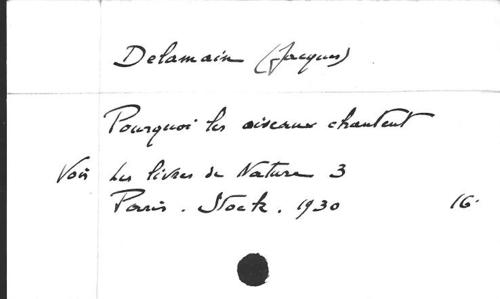 Delamain (Jacques)
Pourquoi les oiseaux chantent
Voir Les livres de Nature 3
Paris. Stock. 1930 16.